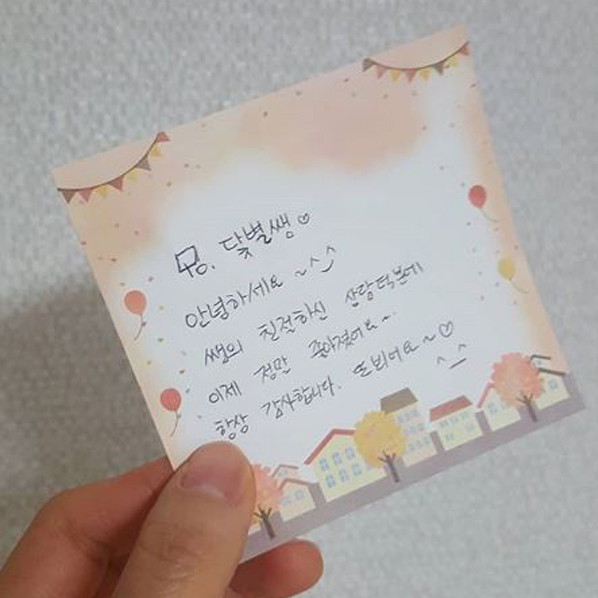 달별쌤♡
안녕하세요~^_^
쌤의 친절하신 사랑덕분에
이제 정말 좋아졌어요~.
항상 감사합니다. 또뵈어요~♡
^_^